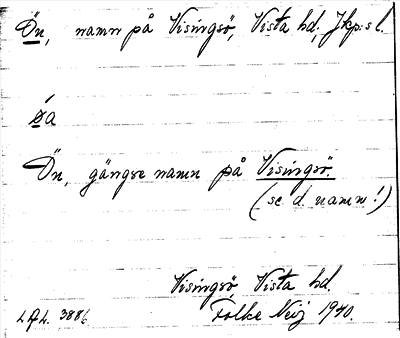 Ön, namn på Visingsö, Vista hd, Jkp:s l.
öa
Ön, gängse namn på Visingsö.
(se d. namn!)
Visingsö, Vista hd.
Folke Neij 1940.
LAL. 3886